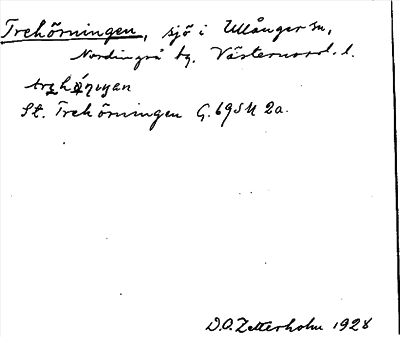 Trehörningen, sjö i Ullånger sn,
Nordingrå tg. Västernorrl. l.
St. Trehörningen G. 69 SU 2a.
D.O. Zetterholm 1928